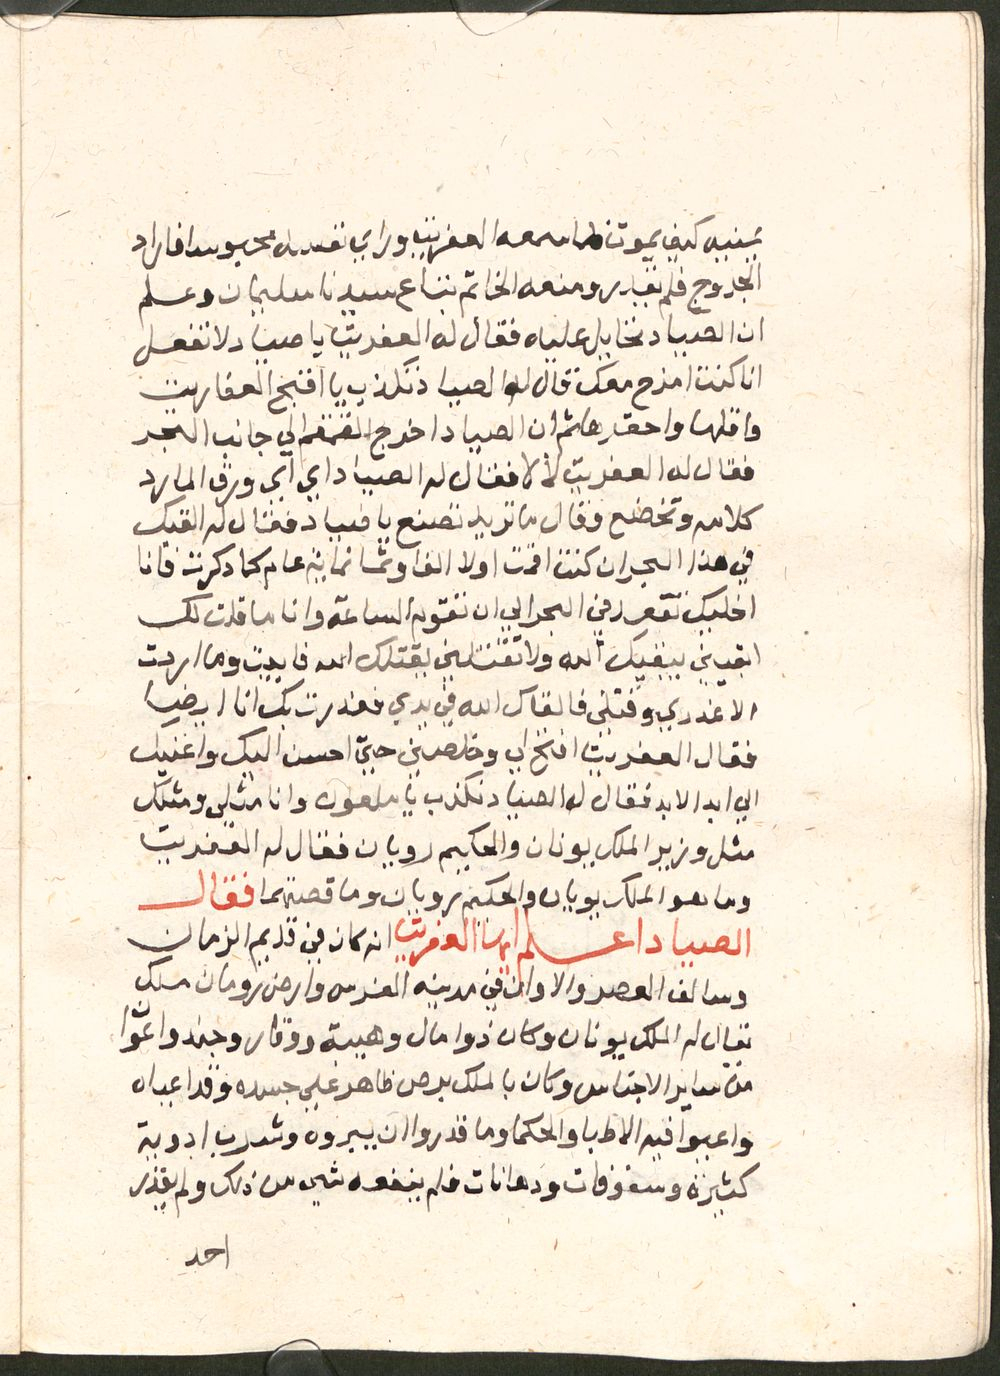 يمنيه كيف يموت فلما سمعه العفريت وراي نفسه محبوسا فاراد
الخروج فلم يقدر ومنعه الخاتم بتاع سيدنا سليمان وعلم
ان الصياد تحايل عليه فقال له العفريت يا صياد لا تفعل
انا كنت امزح معك قال له الصياد تكذب يا اقبح العفاريت
واقلها واحقرها ثم ان الصياد اخرج القمقم الي جانب البحر
فقال له العفريت لا لا فقال له الصياد اي اي ورق المارد
كلامه وتخضع وقال ما تريد تصنع يا صياد فقال له القيك
في هذا البحر ان كنت اقمت اولا الف وثمانماية عام كما دكرت فانا
اخليك تقعد في البحر الي ان تقوم الساعة وانا ما قلت لك
ابقيني يبقيك الله ولا تقتلني يقتلك الله فابيت وما اردت
الا غدري وقتلي فالقاك الله في يدي فغدرت بك انا ايضا
فقال العفريت افتح لي وخلصني حتي احسن اليك واغنيك
الي ابد الابد فقال له الصياد تكذب يا ملعون وانا مثلي ومثلك
مثل وزير الملك يونان والحكيم رويان فقال له العفريت
وما هو الملك يونان والحكيم رويان وما قصتهما فقال
الصياد اعلم ايها العفريت انه كان في قديم الزمان
وسالف العصر والاوان في مدينه الفرس وارض رومان ملك
يقال له الملك يونان وكان ذوا مال وهيبة ووقار وجند واعوان
من ساير الاجناس وكان بالملك برص ظاهر علي جسده وقد اعياه
واعيوا فيه الاطبا والحكما وما قدروا ان يبروه وشرب ادوية
كثيرة وسفوفات ودهانات فلم ينفعه شي من ذلك ولم يقدر
احد